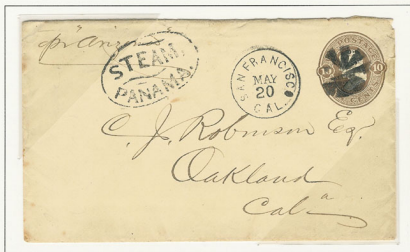 STEAM.
PANAMA.
SAN FRANCISCO
MAY
20
CAL.
POSTAGE
10
CENTS
C. J. Robinson Esq.
Oakland
Cala